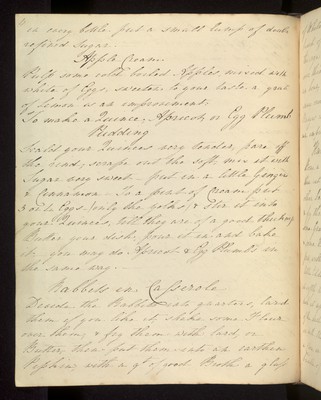 in every bottle. put a small lump of double
refined Sugar.
Apple Cream
Pulp some cold boiled Apples, mixed with
whole of Eggs. sweeten to your taste a grat
of Lemon is an improvement.
To make a Quince, Apricot, or Egg Plumb
Pudding
Scald your Quinces very tender, pare off
the rind, scrape out the soft, mix it with
Sugar very sweet. put in a little Ginger
& Cinnamon. To a pint of Cream put
3 or 4 Eggs, (only the yolks) & stir it into
your Quinces, till they are of a good thickness
Butter your dish, pour it in and bake
it, you may do Apricot & Egg Plumbs in
the same way.
Rabbets in Casserole
Divide the Rabbets into quarters, lard
them if you like it, shake some Flour
over them, & fry them with lard, or
Butter, then put them into an earthen
Pipkin, with a qt of good Broth a glass